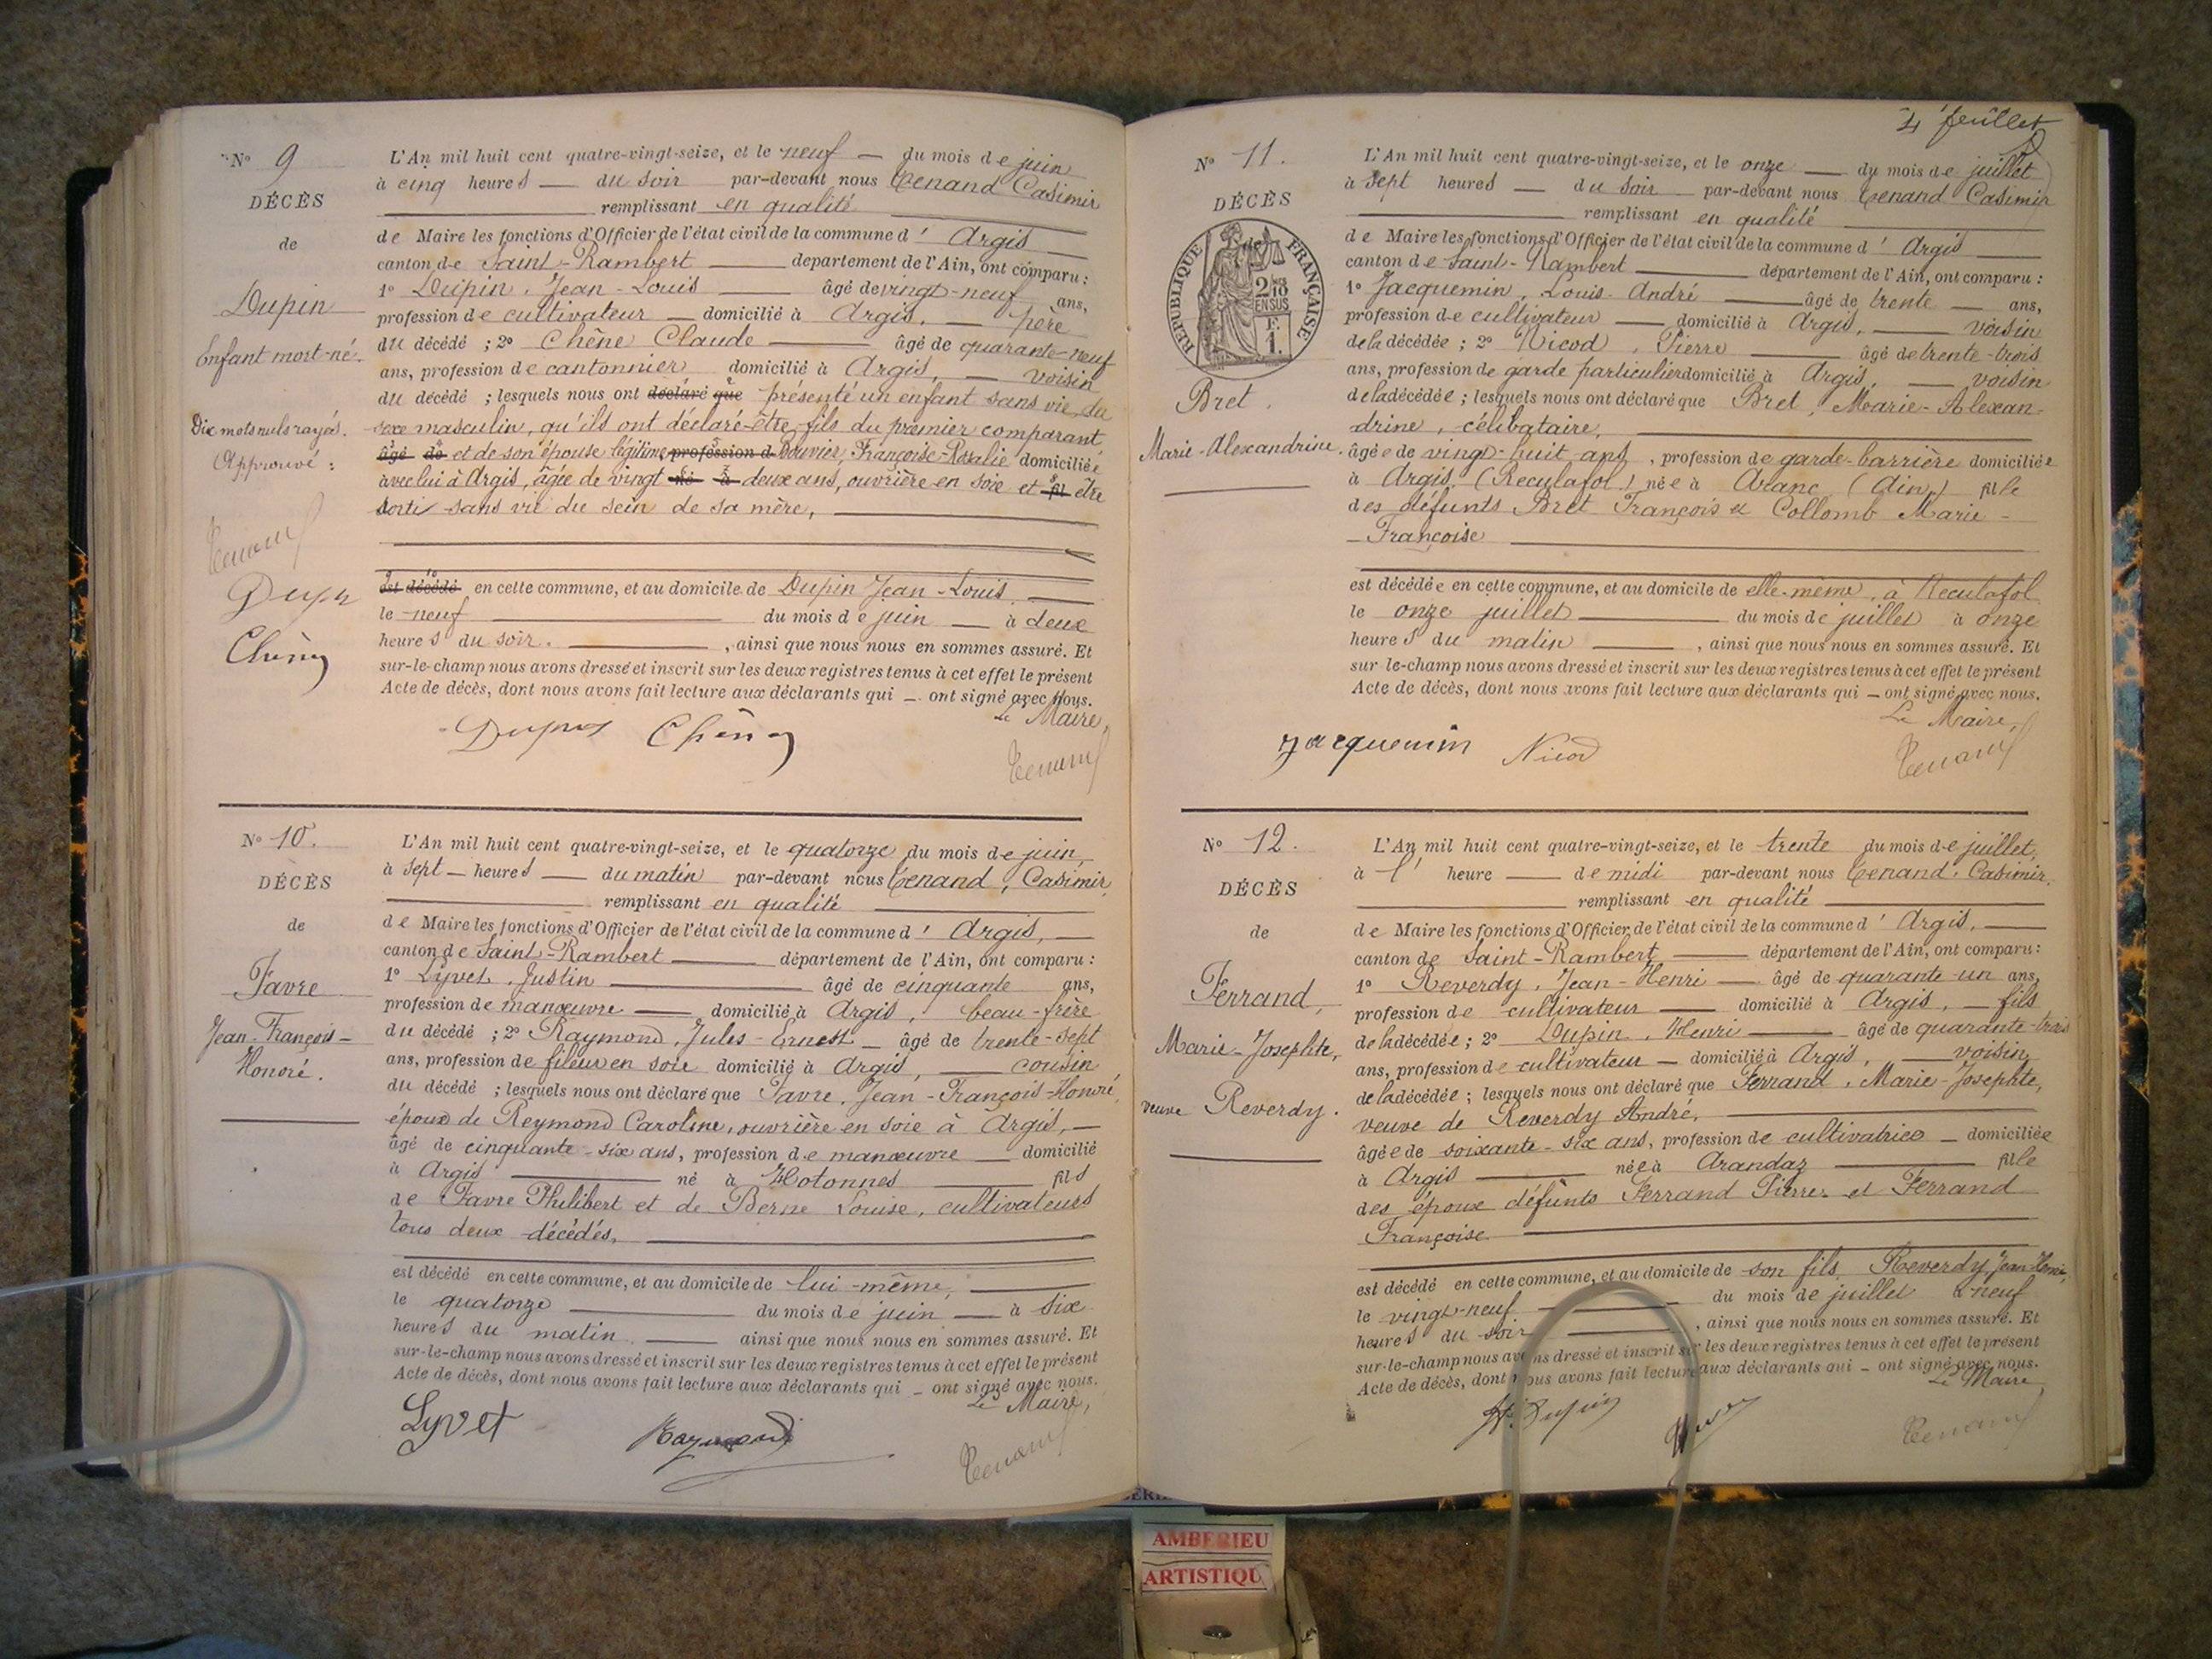 N° 9
DÉCÈS
de
Dupin
Enfant mort-né.
Dix mots nuls rayés.
Approuvé :
Tenand
Dupin
Chêne
L'An mil huit cent quatre-vingt-seize, et le neuf — du mois de juin
à cinq heures — du soir par-devant nous Tenand Casimir
remplissant en qualité
de Maire les fonctions d'Officier de l'état civil de la commune d' Argis
canton de Saint-Rambert — département de l'Ain, ont comparu :
1° Dupin, Jean-Louis — âgé de vingt-neuf ans,
profession de cultivateur — domicilié à Argis, — père
du décédé ; 2° Chêne Claude — âgé de quarante-neuf
ans, profession de cantonnier domicilié à Argis, — voisin
du décédé ; lesquels nous ont déclaré que présenté un enfant sans vie, du
sexe masculin, qu'ils ont déclaré être fils du premier comparant
âgé de et de son épouse légitime profession d Bouvier, Françoise-Rosalie domiciliée
avec lui à Argis, âgée de vingt né à deux ans, ouvrière en soie et fil être
sorti sans vie du sein de sa mère,
est décédé en cette commune, et au domicile de Dupin Jean-Louis,
le neuf — du mois de juin — à deux
heures du soir. — , ainsi que nous nous en sommes assuré. Et
sur-le-champ nous avons dressé et inscrit sur les deux registres tenus à cet effet le présent
Acte de décès, dont nous avons fait lecture aux déclarants qui — ont signé avec nous.
Le Maire,
Dupin Chêne Tenand
N° 10.
DÉCÈS
de
Favre
Jean-François-
Honoré.
L'An mil huit cent quatre-vingt-seize, et le quatorze du mois de juin,
à sept — heures — du matin par-devant nous Tenand, Casimir,
remplissant en qualité
de Maire les fonctions d'Officier de l'état civil de la commune d' Argis, —
canton de Saint-Rambert — département de l'Ain, ont comparu :
1° Lyvet, Justin — âgé de cinquante ans,
profession de manœuvre — domicilié à Argis, beau-frère
du décédé ; 2° Raymond, Jules-Ernest — âgé de trente-sept
ans, profession de fileur en soie domicilié à Argis, — cousin
du décédé ; lesquels nous ont déclaré que Favre, Jean-François-Honoré,
époux de Reymond Caroline, ouvrière en soie à Argis, —
âgé de cinquante-six ans, profession de manœuvre — domicilié
à Argis — né à Hotonnes — fils
de Favre Philibert et de Berne Louise, cultivateurs
tous deux décédés,
est décédé en cette commune, et au domicile de lui-même,
le quatorze — du mois de juin — à six
heures du matin — ainsi que nous nous en sommes assuré. Et
sur-le-champ nous avons dressé et inscrit sur les deux registres tenus à cet effet le présent
Acte de décès, dont nous avons fait lecture aux déclarants qui — ont signé avec nous.
Le Maire,
Lyvet Raymond Tenand
4e feuillet
N° 11.
DÉCÈS
de
RÉPUBLIQUE FRANÇAISE
2/10 EN SUS
F.
1.
Bret,
Marie-Alexandrine.
L'An mil huit cent quatre-vingt-seize, et le onze — du mois de juillet
à sept heures — du soir par-devant nous Tenand Casimir
remplissant en qualité
de Maire les fonctions d'Officier de l'état civil de la commune d' Argis
canton de Saint-Rambert — département de l'Ain, ont comparu :
1° Jacquemin, Louis-André — âgé de trente — ans,
profession de cultivateur — domicilié à Argis, — voisin
de la décédée ; 2° Nicod, Pierre — âgé de trente-trois
ans, profession de garde particulier domicilié à Argis, — voisin
de la décédée ; lesquels nous ont déclaré que Bret, Marie-Alexan-
drine, célibataire,
âgée de vingt-huit ans, profession de garde-barrière domiciliée
à Argis, (Reculafol) née à Aranc (Ain) fille
des défunts Bret François et Collomb Marie-
Françoise
est décédée en cette commune, et au domicile de elle-même, à Reculafol
le onze juillet — du mois de juillet à onze
heures du matin — , ainsi que nous nous en sommes assuré. Et
sur-le-champ nous avons dressé et inscrit sur les deux registres tenus à cet effet le présent
Acte de décès, dont nous avons fait lecture aux déclarants qui — ont signé avec nous.
Le Maire,
Jacquemin Nicod Tenand
N° 12.
DÉCÈS
de
Ferrand,
Marie-Josephte,
veuve Reverdy.
L'An mil huit cent quatre-vingt-seize, et le trente du mois de juillet,
à 1' heure — de midi par-devant nous Tenand, Casimir,
remplissant en qualité
de Maire les fonctions d'Officier de l'état civil de la commune d' Argis,
canton de Saint-Rambert — département de l'Ain, ont comparu :
1° Reverdy, Jean-Henri — âgé de quarante-un ans,
profession de cultivateur — domicilié à Argis, — fils
de la décédée ; 2° Dupin, Henri — âgé de quarante-trois
ans, profession de cultivateur — domicilié à Argis, — voisin
de la décédée ; lesquels nous ont déclaré que Ferrand, Marie-Josephte,
veuve de Reverdy André,
âgée de soixante-six ans, profession de cultivatrice — domiciliée
à Argis — née à Arandaz — fille
des époux défunts Ferrand Pierre et Ferrand
Françoise
est décédé en cette commune, et au domicile de son fils, Reverdy Jean-Henri,
le vingt-neuf — du mois de juillet à neuf
heures du soir — , ainsi que nous nous en sommes assuré. Et
sur-le-champ nous avons dressé et inscrit sur les deux registres tenus à cet effet le présent
Acte de décès, dont nous avons fait lecture aux déclarants qui — ont signé avec nous.
Le Maire,
H. Dupin Tenand
AMBERIEU
ARTISTIQU